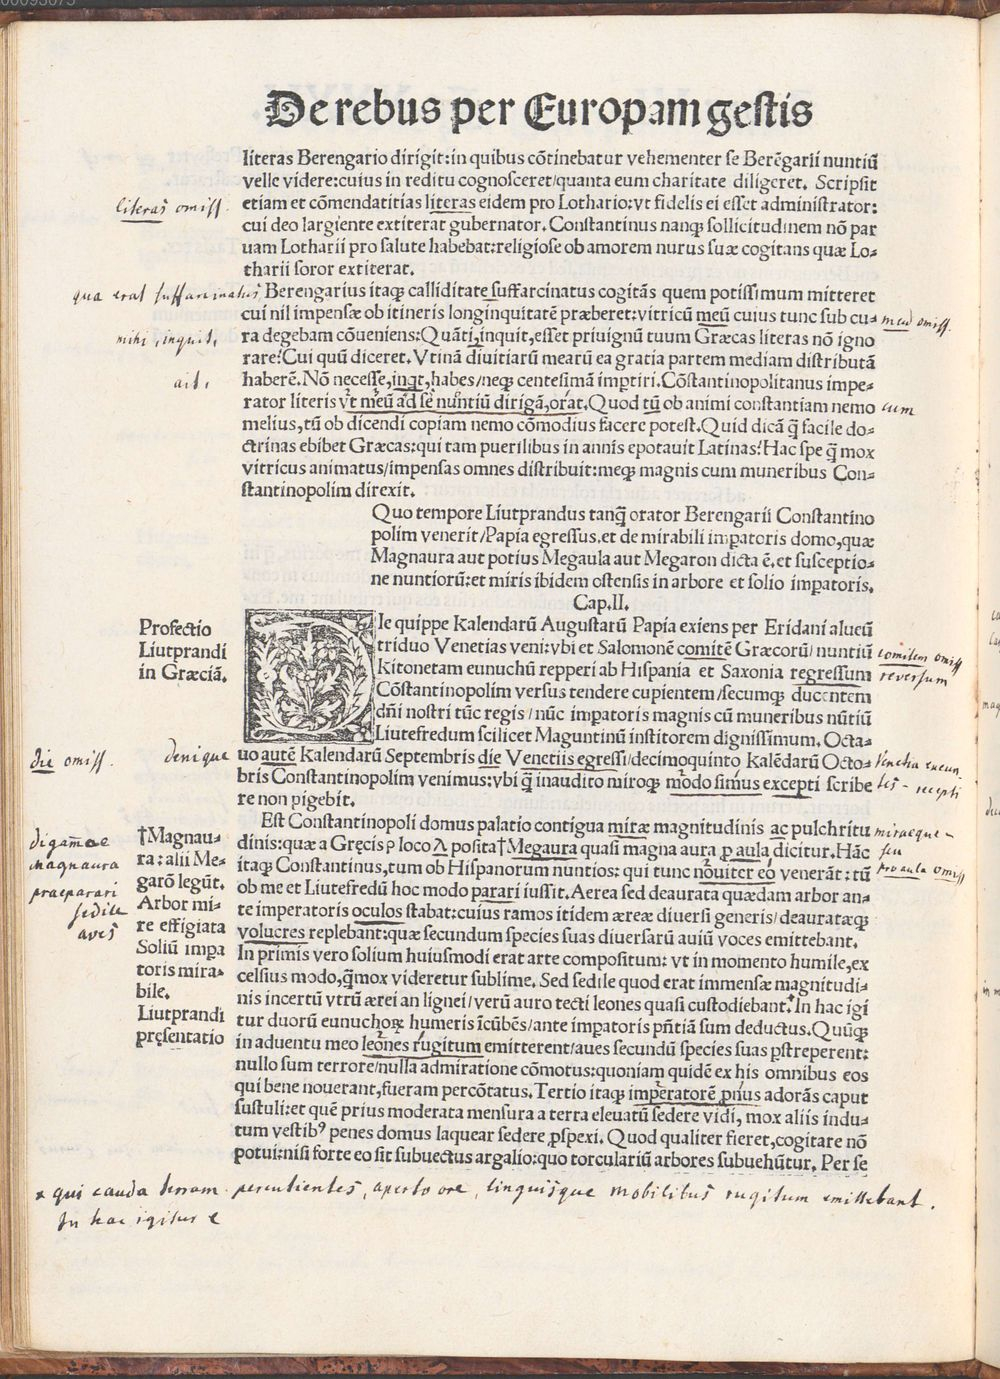 De rebus per Europam gestis
literas Berengario dirigit: in quibus cōtinebatur vehementer se Berēgarii nuntiū
velle videre: cuius in reditu cognosceret/quanta eum charitate diligeret. Scripsit
literas omiss.
etiam et cōmendatitias literas eidem pro Lothario: vt fidelis ei esset administrator:
cui deo largiente extiterat gubernator. Constantinus nanqꝫ sollicitudinem nō par
uam Lotharii pro salute habebat: religiose ob amorem nurus suæ cogitans quæ Lo-
tharii soror extiterat.
qua erat suffarcinatus
Berengarius itaqꝫ calliditate suffarcinatus cogitās quem potissimum mitteret
cui nil impensæ ob itineris longinquitatē præberet: vitricū meū cuius tunc sub cu-
meū omiss.
mihi, inquit,
ra degebam cōueniens: Quāti, inquit, esset priuignū tuum Græcas literas nō igno
rare? Cui quū diceret. Vtinā diuitiarū mearū ea gratia partem mediam distributā
ait,
haberē. Nō necesse, inqt, habes/neqꝫ centesimā imꝑtiri. Cōstantinopolitanus impe-
rator literis vt meū ad se nuntiū dirigā, orat. Quod tū ob animi constantiam nemo
cum
melius, tū ob dicendi copiam nemo cōmodius facere potest. Quid dicā q̄ facile do-
ctrinas ebibet Græcas: qui tam puerilibus in annis epotauit Latinas? Hac spe q̄ mox
vitricus animatus/impensas omnes distribuit: meqꝫ magnis cum muneribus Con-
stantinopolim direxit.
Quo tempore Liutprandus tanq̄ orator Berengarii Constantino
polim venerit/Papia egressus. et de mirabili imꝑatoris domo, quæ
Magnaura aut potius Megaula aut Megaron dicta ē. et susceptio-
ne nuntiorū: et miris ibidem ostensis in arbore et solio imꝑatoris.
Cap. II.
Profectio
Liutprandi
in Græciā.
Ie quippe Kalendarū Augustarū Papia exiens per Eridani alueū
triduo Venetias veni: vbi et Salomonē comitē Græcorū/nuntiū
comitem omiss
Kitonetam eunuchū repperi ab Hispania et Saxonia regressum
reversum
Cōstantinopolim versus tendere cupientem/secumqꝫ ducentem
dn̄i nostri tūc regis/nūc imꝑatoris magnis cū muneribus nūtiū
Liutefredum scilicet Maguntinū institorem dignissimum. Octa-
die omiss. denique
uo autē Kalendarū Septembris die Venetiis egressi/decimoquinto Kalēdarū Octo-
bris Constantinopolim venimus: vbi q̄ inaudito miroqꝫ modo simus excepti scribe
recepti
re non pigebit.
Est Constantinopoli domus palatio contigua miræ magnitudinis ac pulchritu
miraeque
seu
dinis: quæ a Gręcis ꝑ loco λ posita † Megaura quasi magna aura ꝓ aula dicitur. Hāc
pro aula omiss
itaqꝫ Constantinus, tum ob Hispanorum nuntios: qui tunc nouiter eo venerāt: tū
ob me et Liutefredū hoc modo parari iussit. Aerea sed deaurata quædam arbor an-
te imperatoris oculos stabat: cuius ramos itidem æreæ diuersi generis/deauratæqꝫ
volucres replebant: quæ secundum species suas diuersarū auiū voces emittebant.
digamae
magnaura
praeparari
sedile
aves
†Magnau-
ra: alii Me-
garō legūt.
Arbor mi-
re effigiata
Soliū imꝑa
toris mira-
bile.
Liutprandi
pręsentatio
In primis vero solium huiusmodi erat arte compositum: vt in momento humile, ex
celsius modo, q̄mox videretur sublime. Sed sedile quod erat immensæ magnitudi-
nis incertū vtrū ærei an lignei/verū auro tecti leones quasi custodiebant. In hac igi
tur duorū eunuchoꝝ humeris īcūbēs/ante imꝑatoris pn̄tiā sum deductus. Quūqꝫ
in aduentu meo leones rugitum emitterent/aues secundū species suas ꝑstreperent:
nullo sum terrore/nulla admiratione cōmotus: quoniam quidē ex his omnibus eos
qui bene nouerant, fueram percōtatus. Tertio itaqꝫ imperatorē pnus adorās caput
sustuli: et quē prius moderata mensura a terra eleuatū sedere vidi, mox aliis indu-
tum vestibꝰ penes domus laquear sedere ꝓspexi. Quod qualiter fieret, cogitare nō
potui: nisi forte eo sit subuectus argalio: quo torculariū arbores subuehūtur. Per se
x qui cauda terram percutientes, aperto ore, linguisque mobilibus rugitum emittebant.
In hac igitur